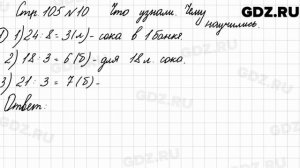 Стр. 105 №10 Что узнали. Чему научились
1) 24 : 8 = 3 (л) - сока в 1 банке.
2) 18 : 3 = 6 (б) - для 18 л. сока.
3) 21 : 3 = 7 (б) -
Ответ:
GDZ.RU